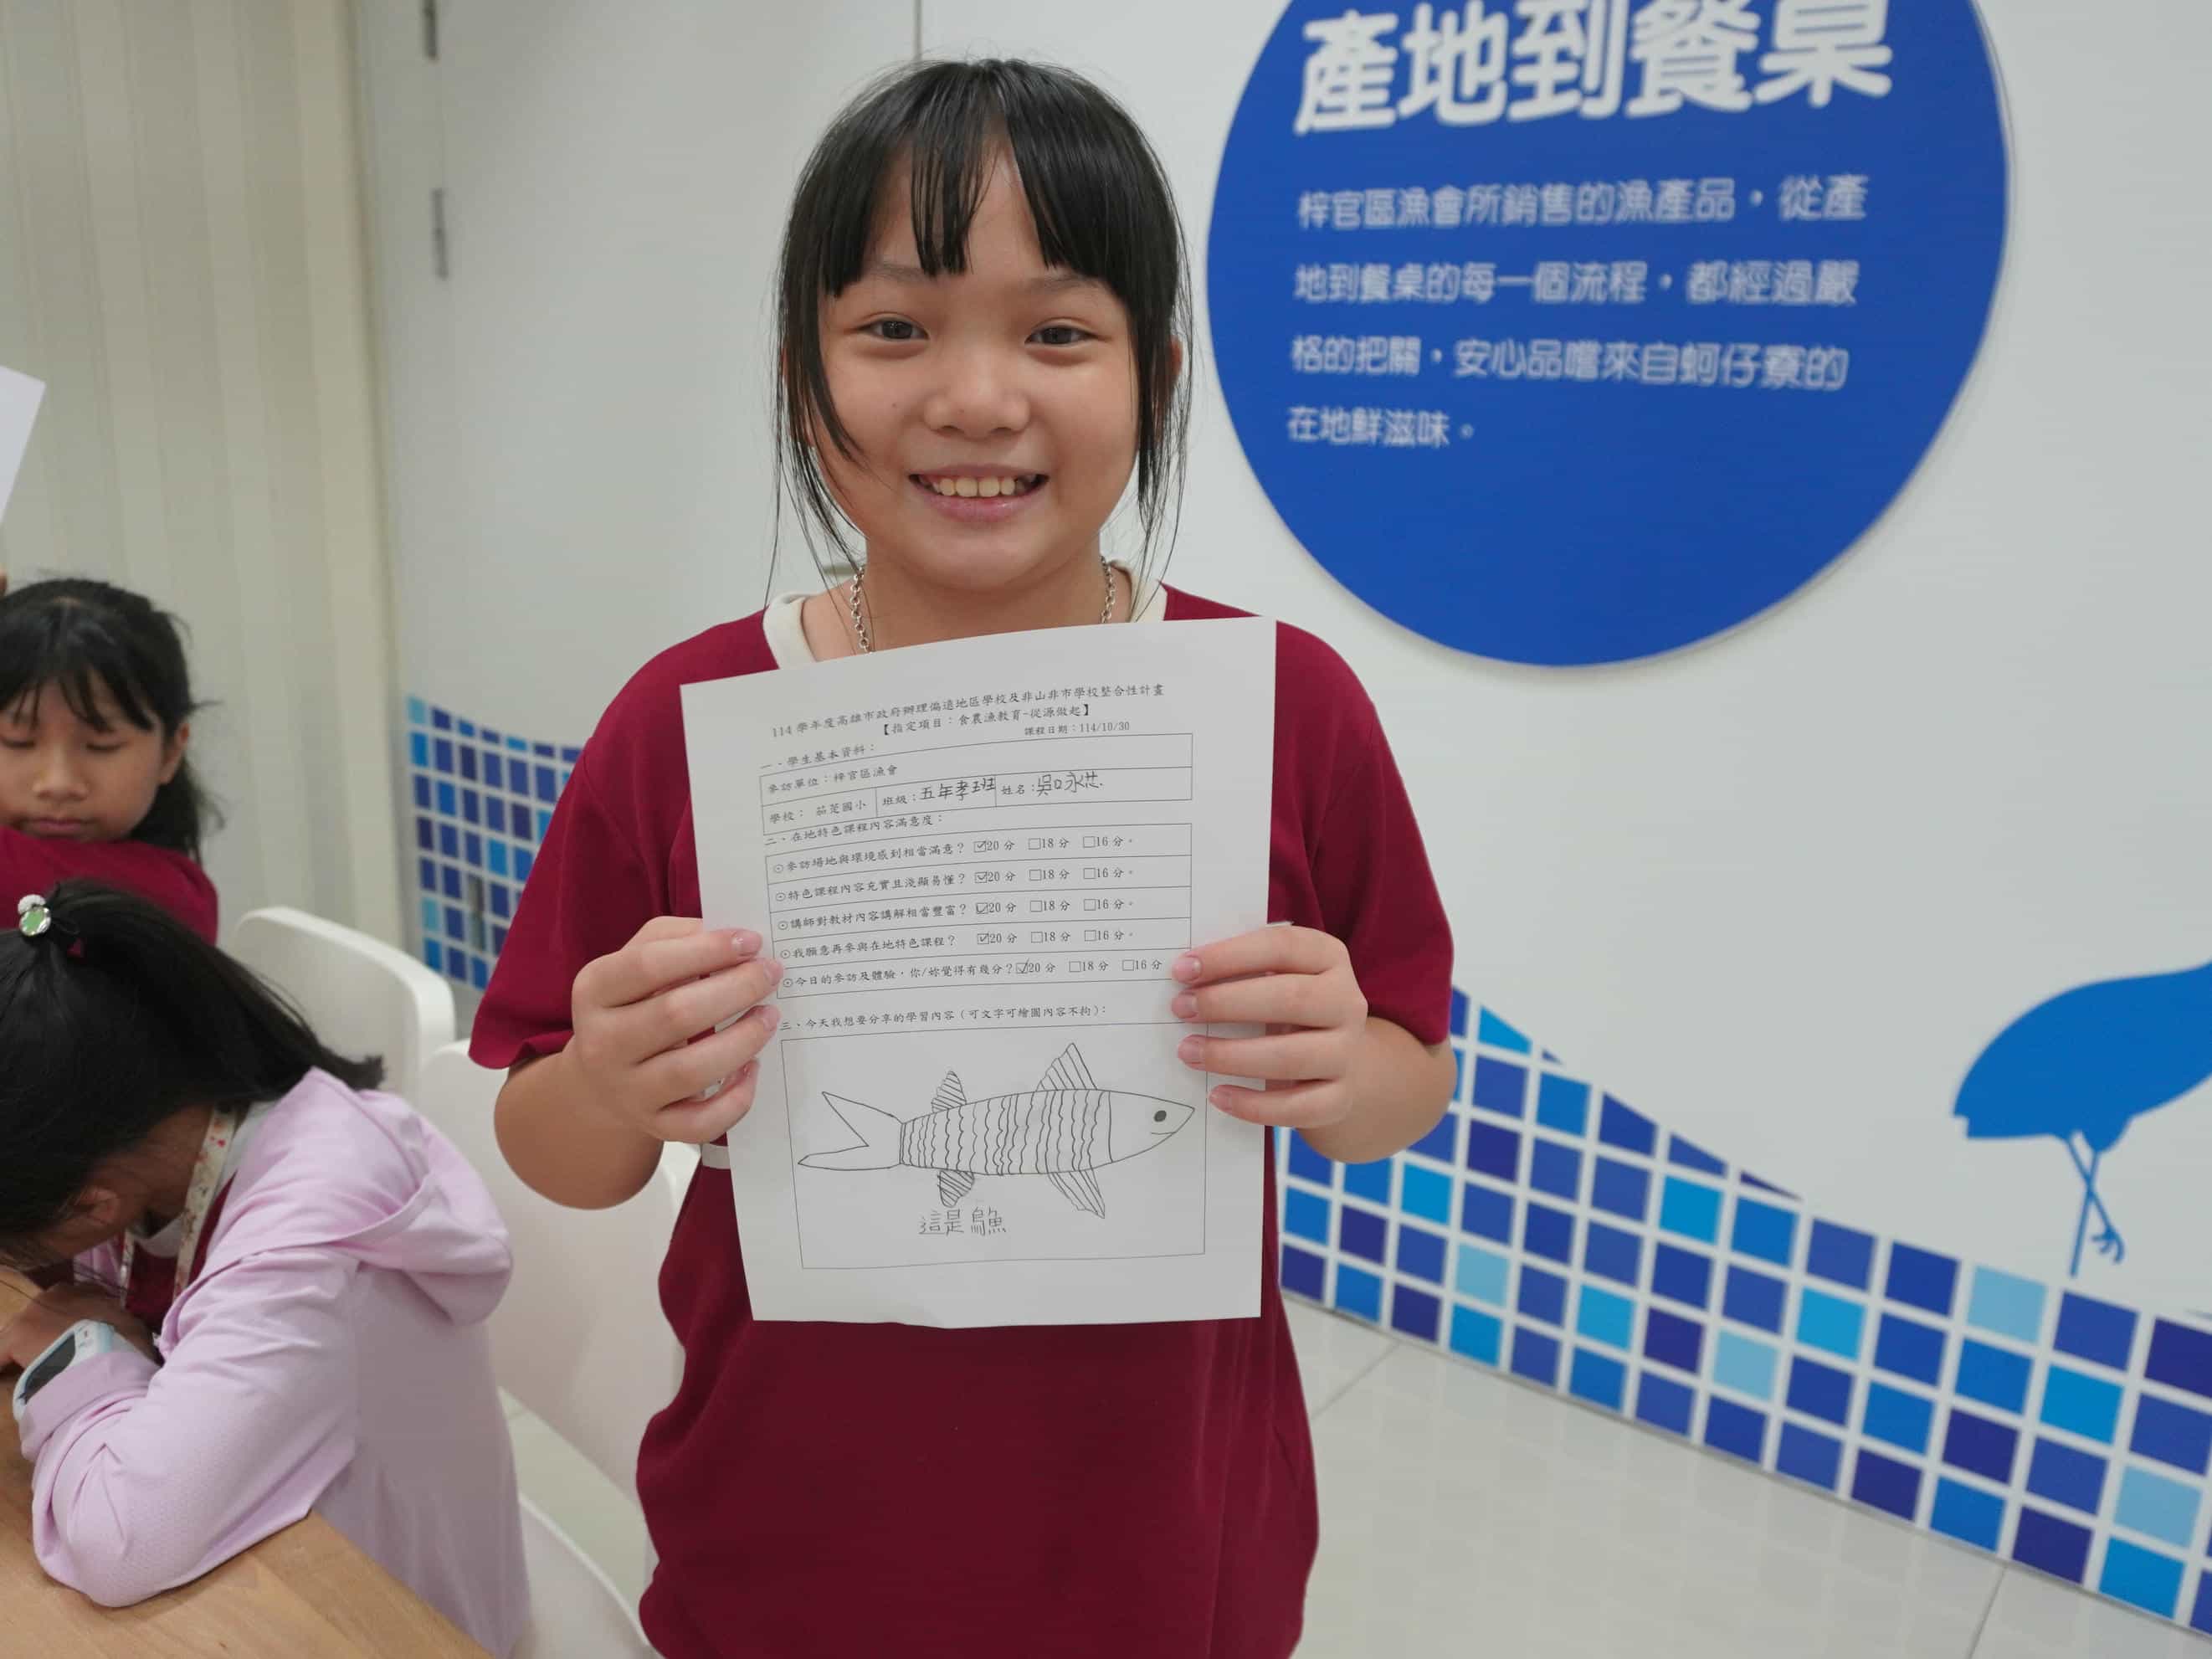 產地到餐桌
梓官區漁會所銷售的漁產品，從產
地到餐桌的每一個流程，都經過嚴
格的把關，安心品嚐來自蚵仔寮的
在地鮮滋味。
114學年度高雄市政府辦理偏遠地區學校及非山非市學校整合性計畫
【指定項目：食農漁教育-從源做起】
課程日期：114/10/30
一、學生基本資料：
參訪單位：梓官區漁會
學校： 茄萣國小 班級：五年孝班 姓名：吳永芯
二、在地特色課程內容滿意度：
⊙參訪場地與環境感到相當滿意？ ☑20 分 □18 分 □16 分。
⊙特色課程內容充實且淺顯易懂？ ☑20 分 □18 分 □16 分。
⊙講師對教材內容講解相當豐富？ ☑20 分 □18 分 □16 分。
⊙我願意再參與在地特色課程？ ☑20 分 □18 分 □16 分。
⊙今日的參訪及體驗，你/妳覺得有幾分？☑20 分 □18 分 □16 分
三、今天我想要分享的學習內容（可文字可繪圖內容不拘）：
這是